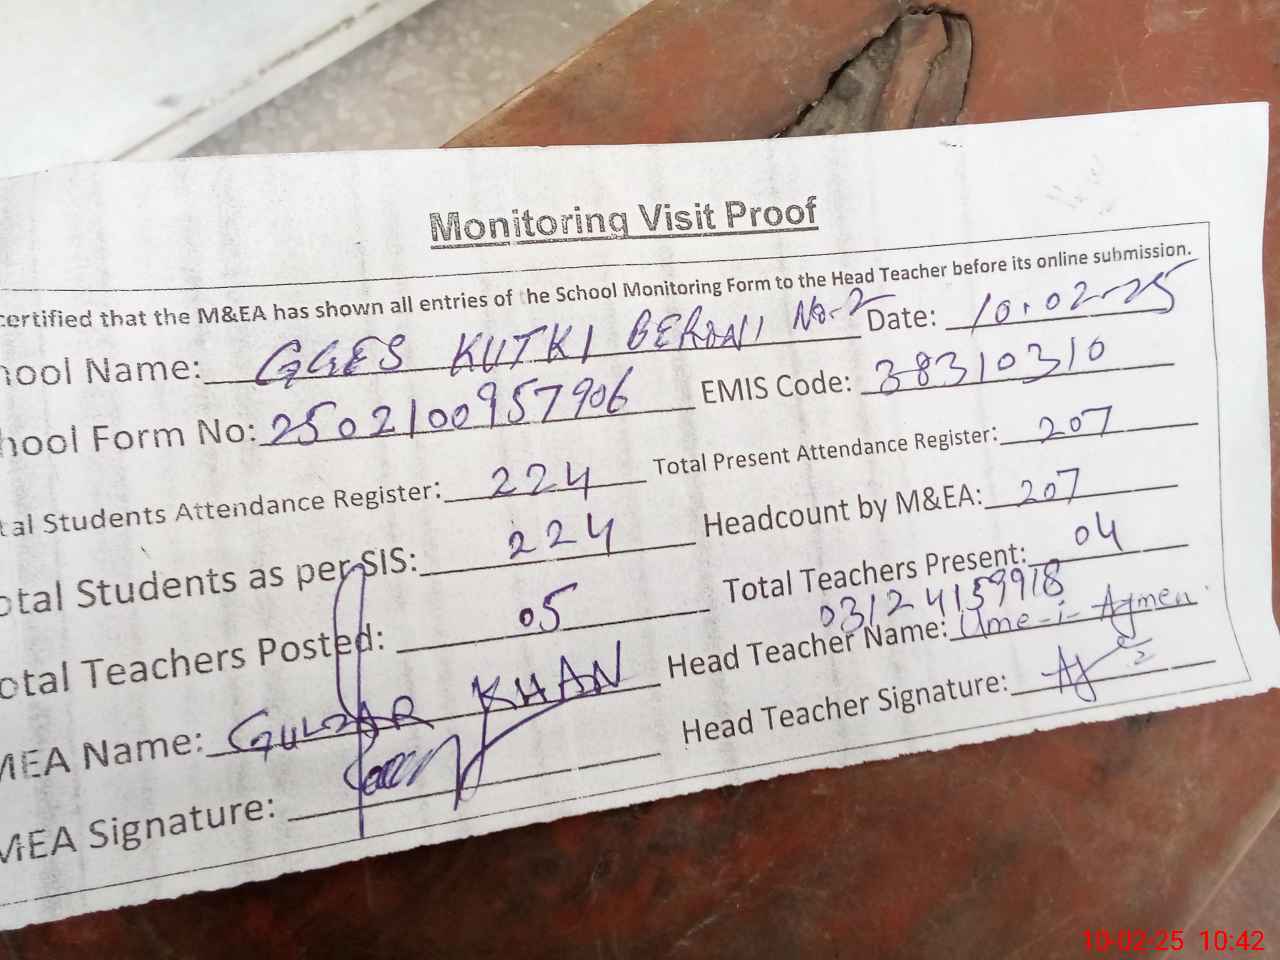 Monitoring Visit Proof
certified that the M&EA has shown all entries of the School Monitoring Form to the Head Teacher before its online submission.
hool Name: GGES KUTKI BERANI No-2 Date: 10.02-25
hool Form No: 2502100957906 EMIS Code: 38310310
tal Students Attendance Register: 224 Total Present Attendance Register: 207
otal Students as per SIS: 224 Headcount by M&EA: 207
otal Teachers Posted: 05 Total Teachers Present: 04
03124159918
MEA Name: GULZAR KHAN Head Teacher Name: Ume-i-Aymen
MEA Signature: Head Teacher Signature:
10-02-25 10:42